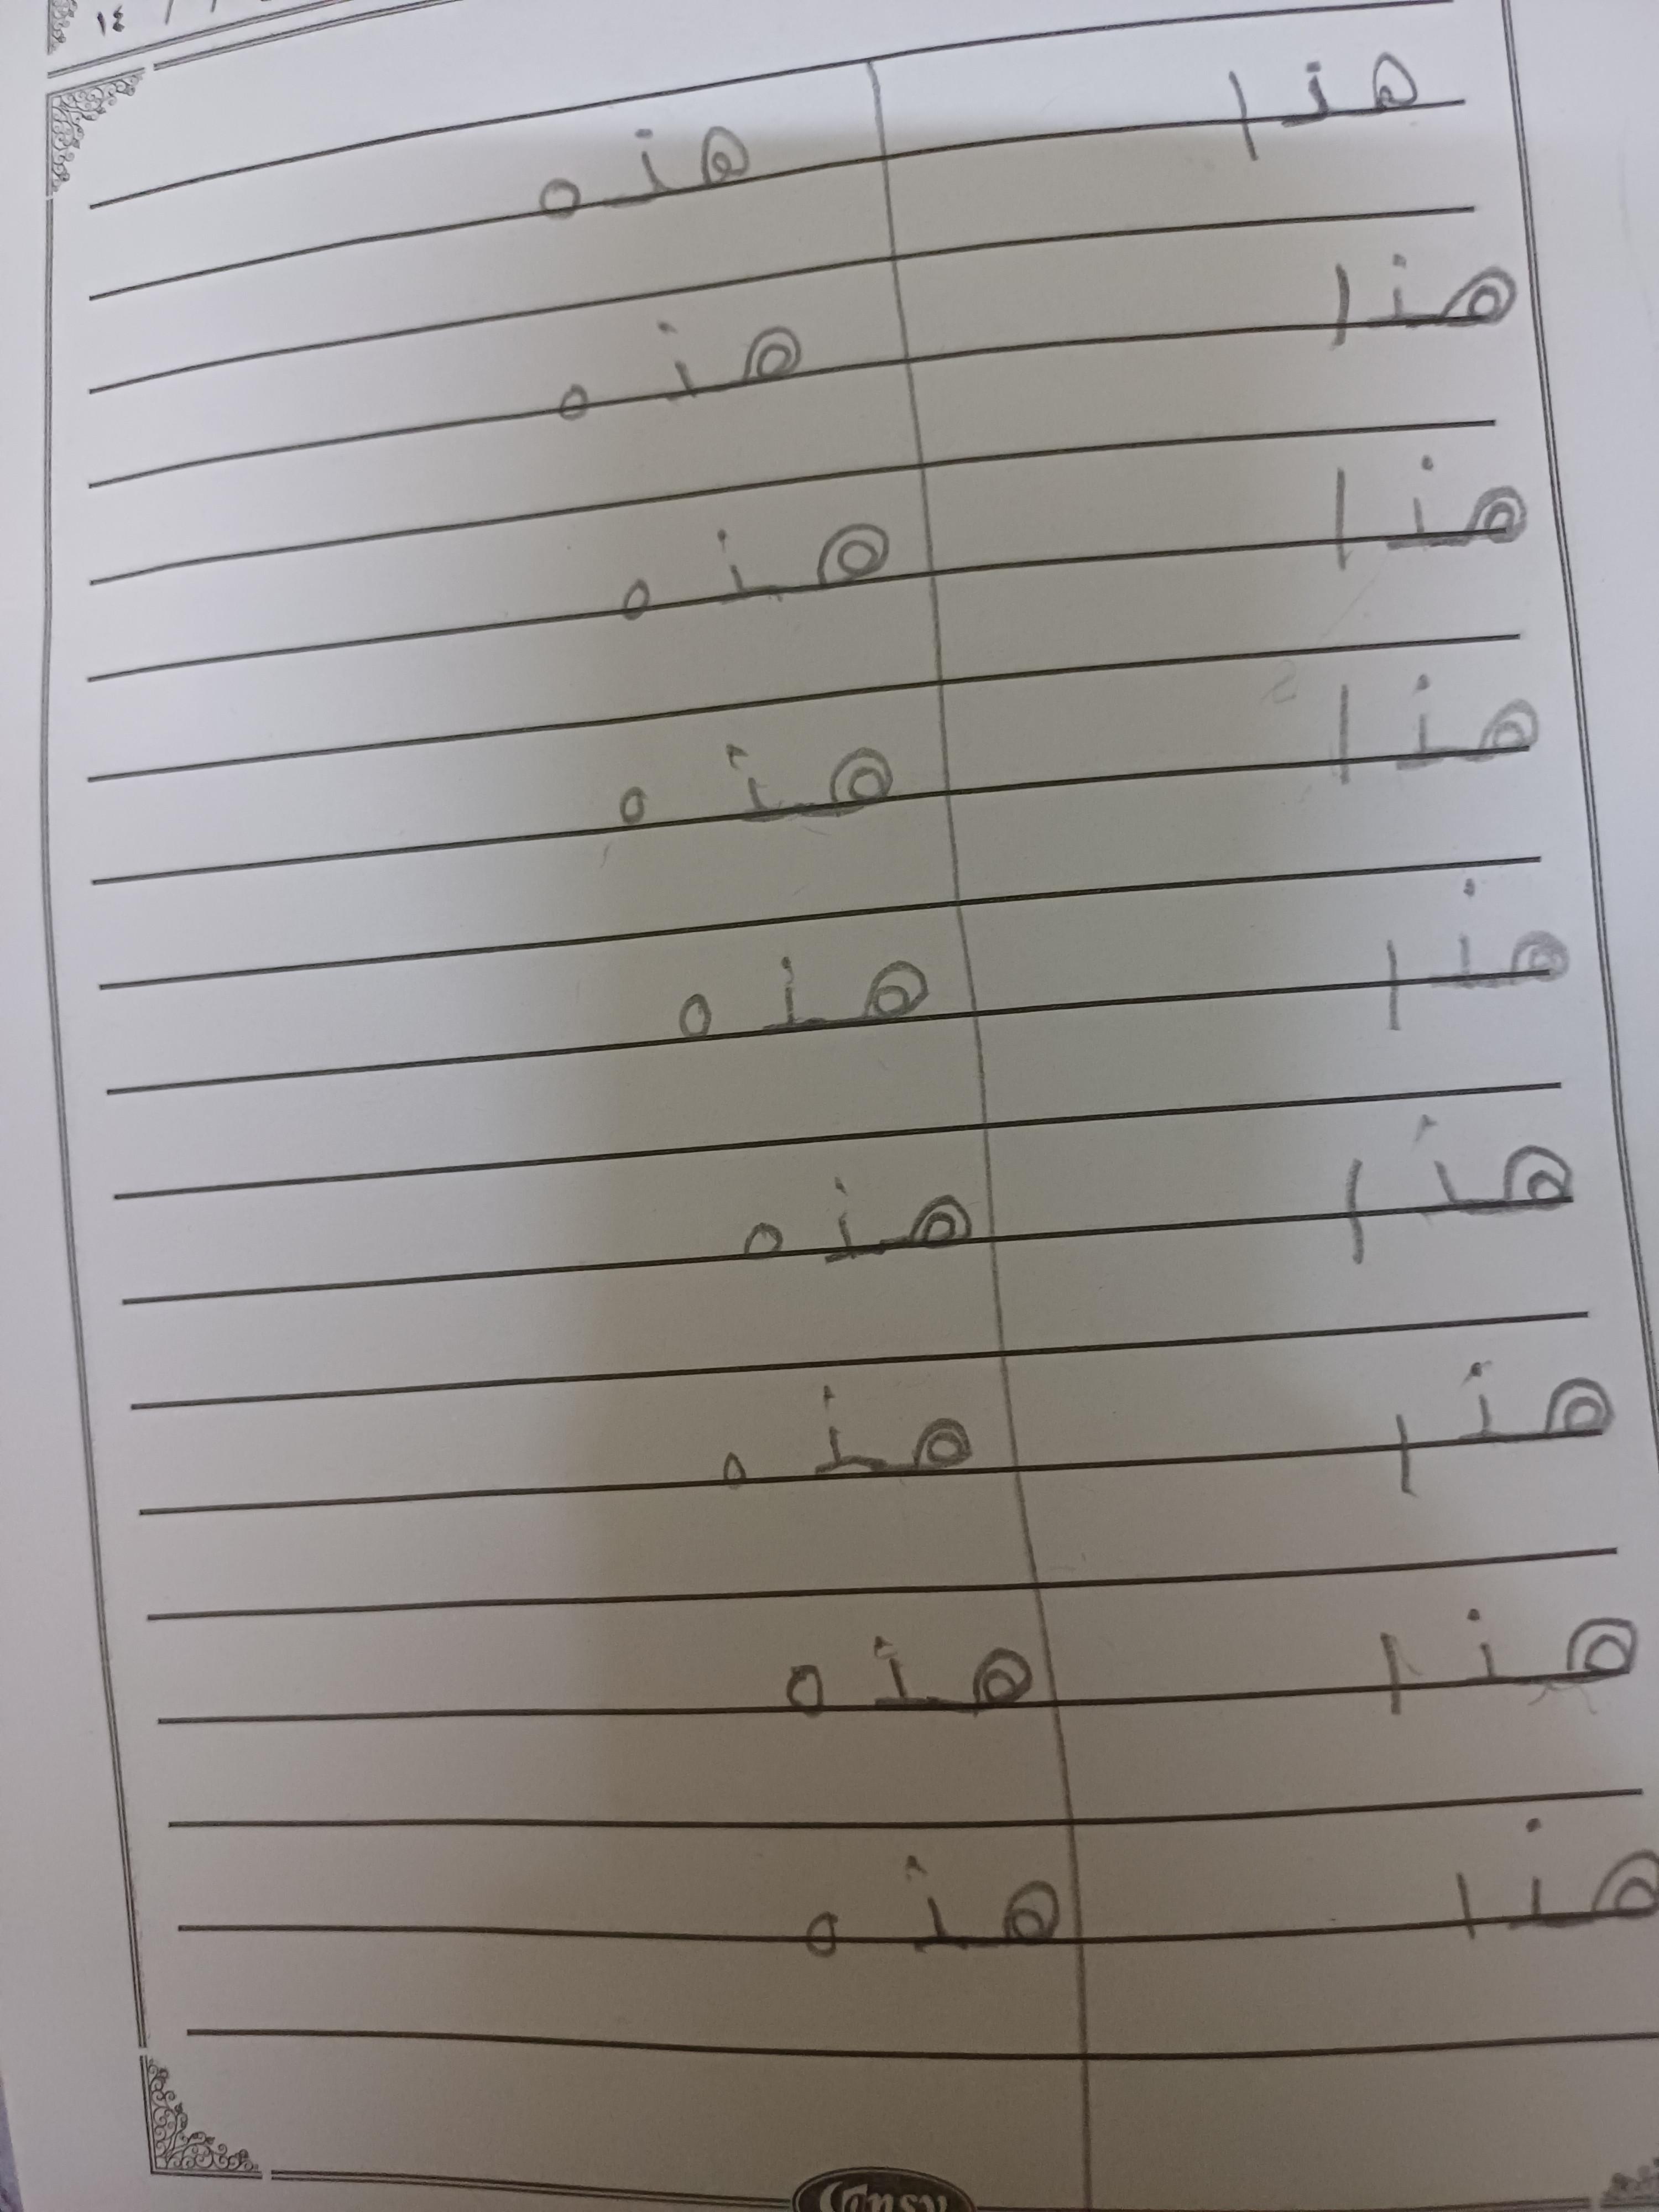 ١٤ / /
هذا هذه
هذا هذه
هذا هذه
هذا هذه
هذا هذه
هذا هذه
هذا هذه
هذا هذه
هذا هذه
Consy